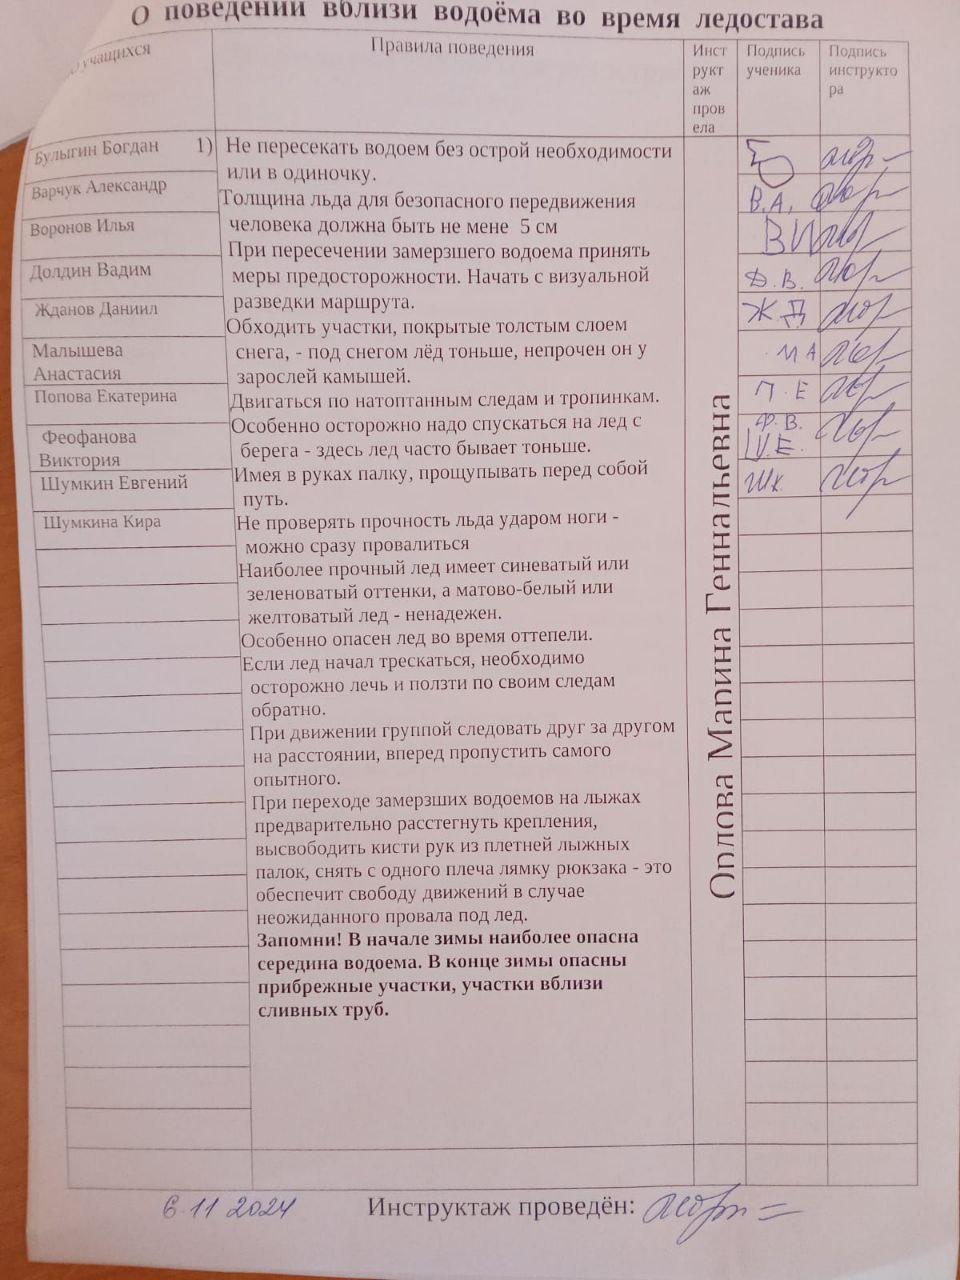 О поведении вблизи водоёма во время ледостава
учащихся
Правила поведения
Инст
рукт
аж
пров
ела
Подпись
ученика
Подпись
инструкто
ра
Булыгин Богдан
Варчук Александр
Воронов Илья
Долдин Вадим
Жданов Даниил
Малышева
Анастасия
Попова Екатерина
Феофанова
Виктория
Шумкин Евгений
Шумкина Кира
1) Не пересекать водоем без острой необходимости
или в одиночку.
Толщина льда для безопасного передвижения
человека должна быть не мене 5 см
При пересечении замерзшего водоема принять
меры предосторожности. Начать с визуальной
разведки маршрута.
Обходить участки, покрытые толстым слоем
снега, - под снегом лёд тоньше, непрочен он у
зарослей камышей.
Двигаться по натоптанным следам и тропинкам.
Особенно осторожно надо спускаться на лед с
берега - здесь лед часто бывает тоньше.
Имея в руках палку, прощупывать перед собой
путь.
Не проверять прочность льда ударом ноги -
можно сразу провалиться
Наиболее прочный лед имеет синеватый или
зеленоватый оттенки, а матово-белый или
желтоватый лед - ненадежен.
Особенно опасен лед во время оттепели.
Если лед начал трескаться, необходимо
осторожно лечь и ползти по своим следам
обратно.
При движении группой следовать друг за другом
на расстоянии, вперед пропустить самого
опытного.
При переходе замерзших водоемов на лыжах
предварительно расстегнуть крепления,
высвободить кисти рук из плетней лыжных
палок, снять с одного плеча лямку рюкзака - это
обеспечит свободу движений в случае
неожиданного провала под лед.
Запомни! В начале зимы наиболее опасна
середина водоема. В конце зимы опасны
прибрежные участки, участки вблизи
сливных труб.
Орлова Марина Геннальевна
В.А.
ВИ
Д.В.
Ж Д
МА
П.Е
Ф.В.
Ш.Е.
Шк
6 11 2024
Инструктаж проведён: